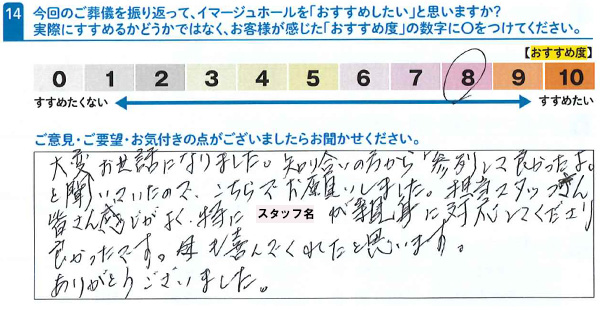 14 今回のご葬儀を振り返って、イマージュホールを「おすすめしたい」と思いますか?
実際にすすめるかどうかではなく、お客様が感じた「おすすめ度」の数字に〇をつけてください。
【おすすめ度】
0 1 2 3 4 5 6 7 8 9 10
すすめたくない すすめたい
ご意見・ご要望・お気付きの点がございましたらお聞かせください。
大変お世話になりました。知り合いの方から「参列して良かったよ」
と聞いていたので、こちらでお願いしました。担当スタッフさん
皆さん感じがよく、特に スタッフ名 が親身に対応してくださり
良かったです。母も喜んでくれたと思います。
ありがとうございました。